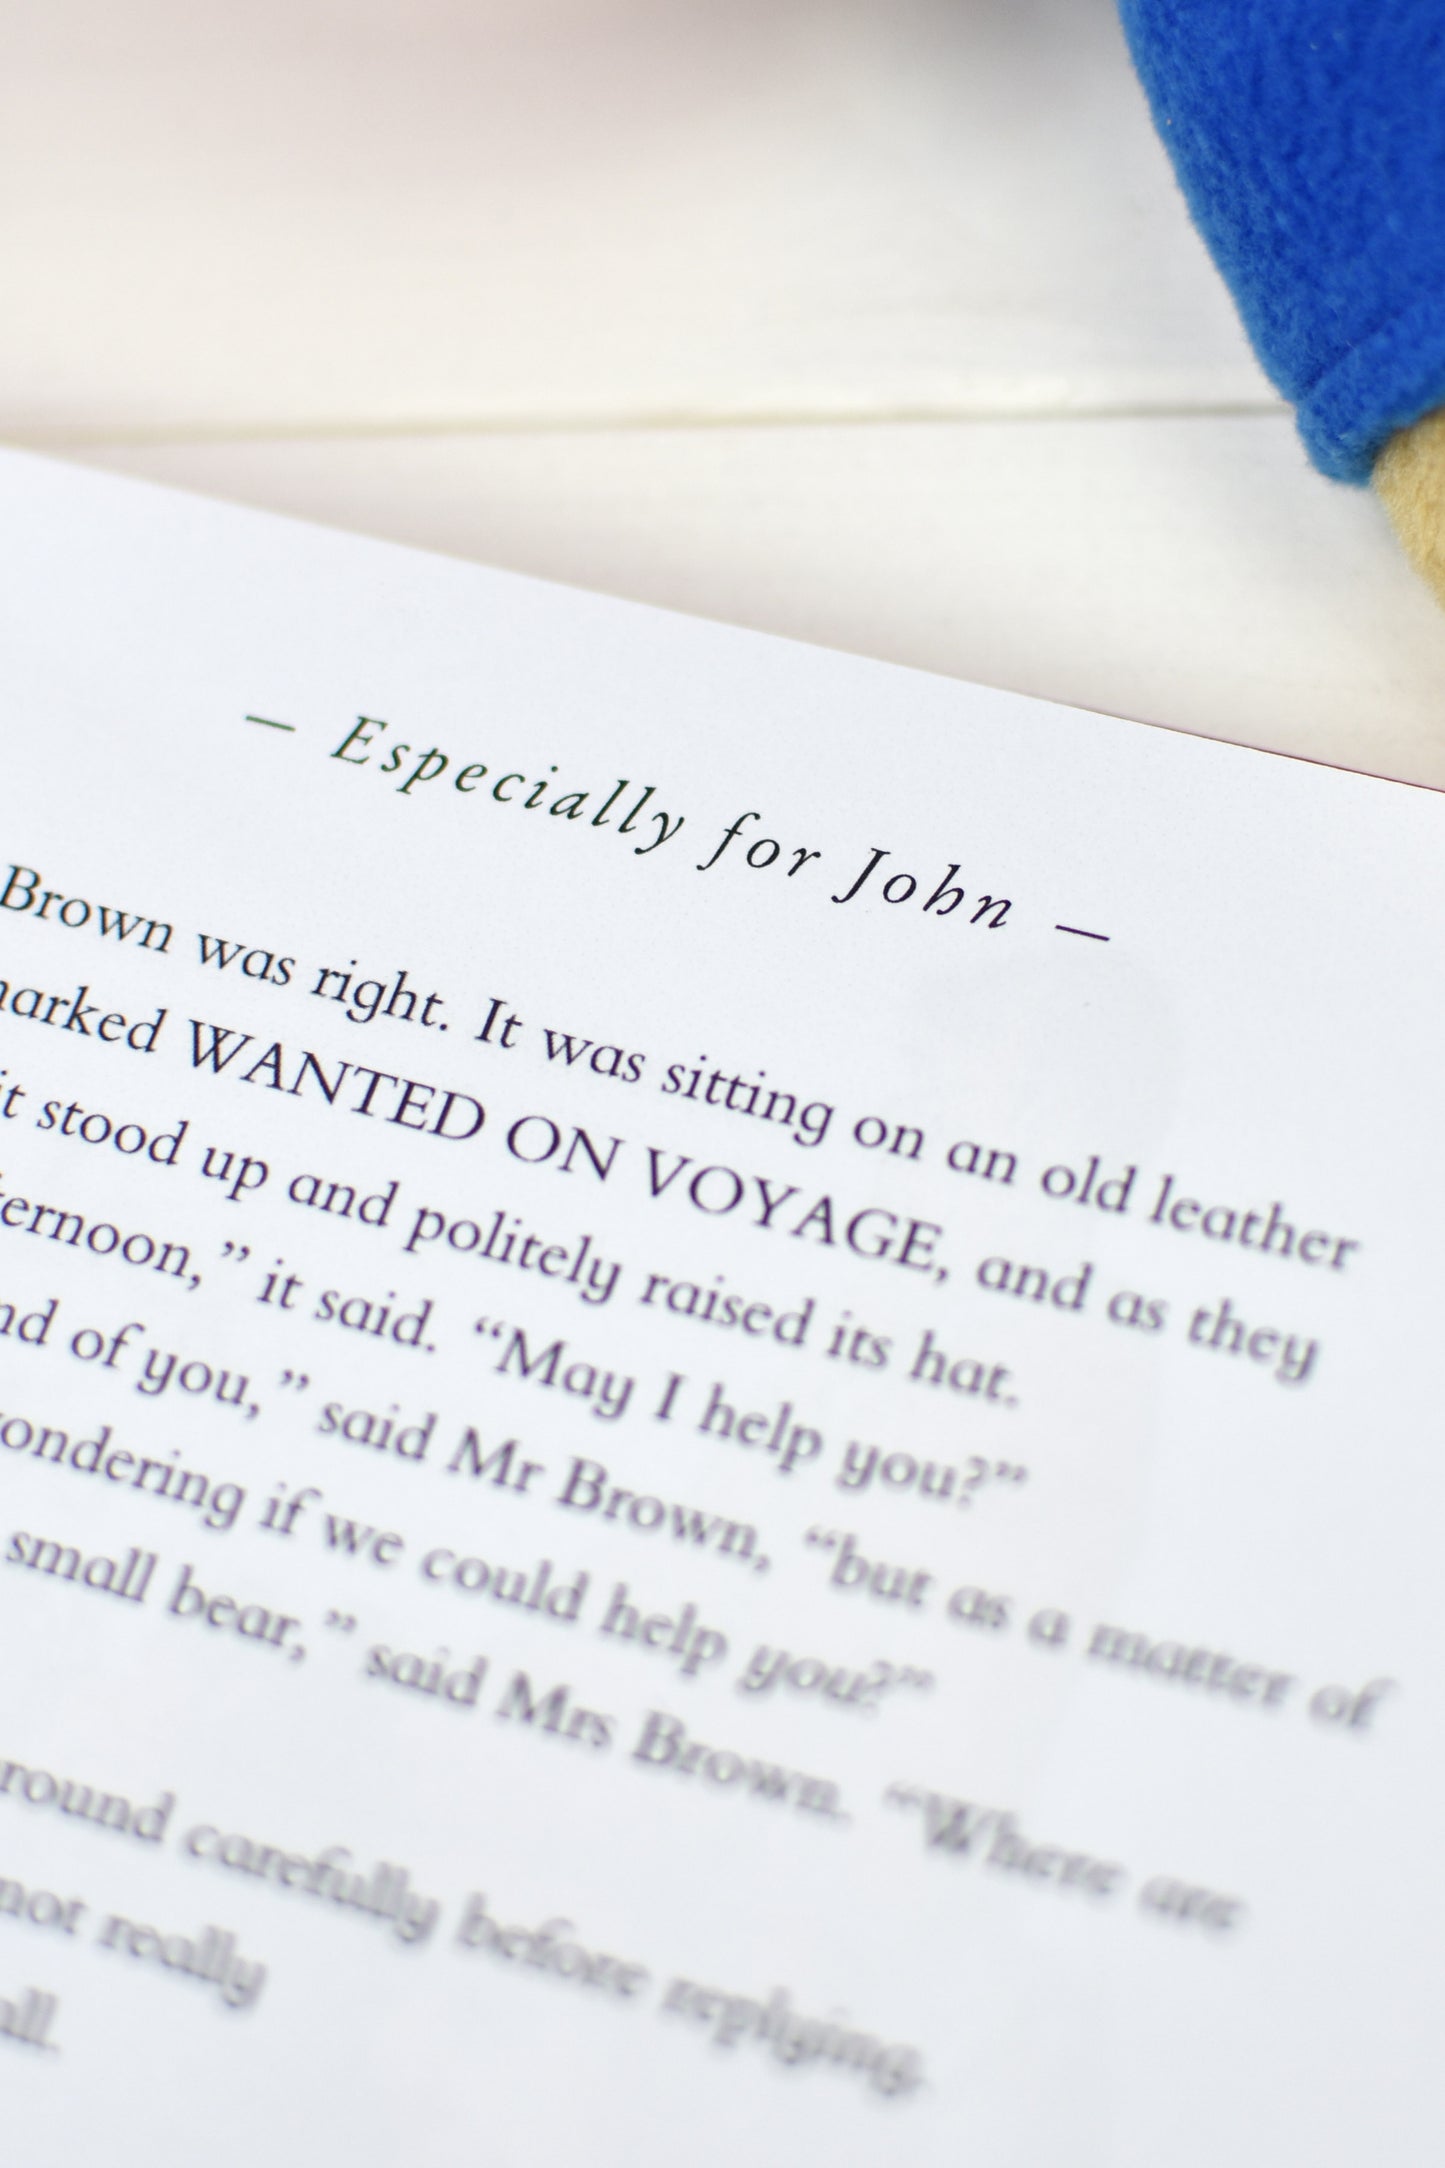 — Especially for John —
Brown was right. It was sitting on an old leather
marked WANTED ON VOYAGE, and as they
it stood up and politely raised its hat.
ternoon,” it said. “May I help you?”
nd of you,” said Mr Brown, “but as a matter of
ondering if we could help you?”
small bear,” said Mrs Brown. “Where are
round carefully before replying.
not really
all.